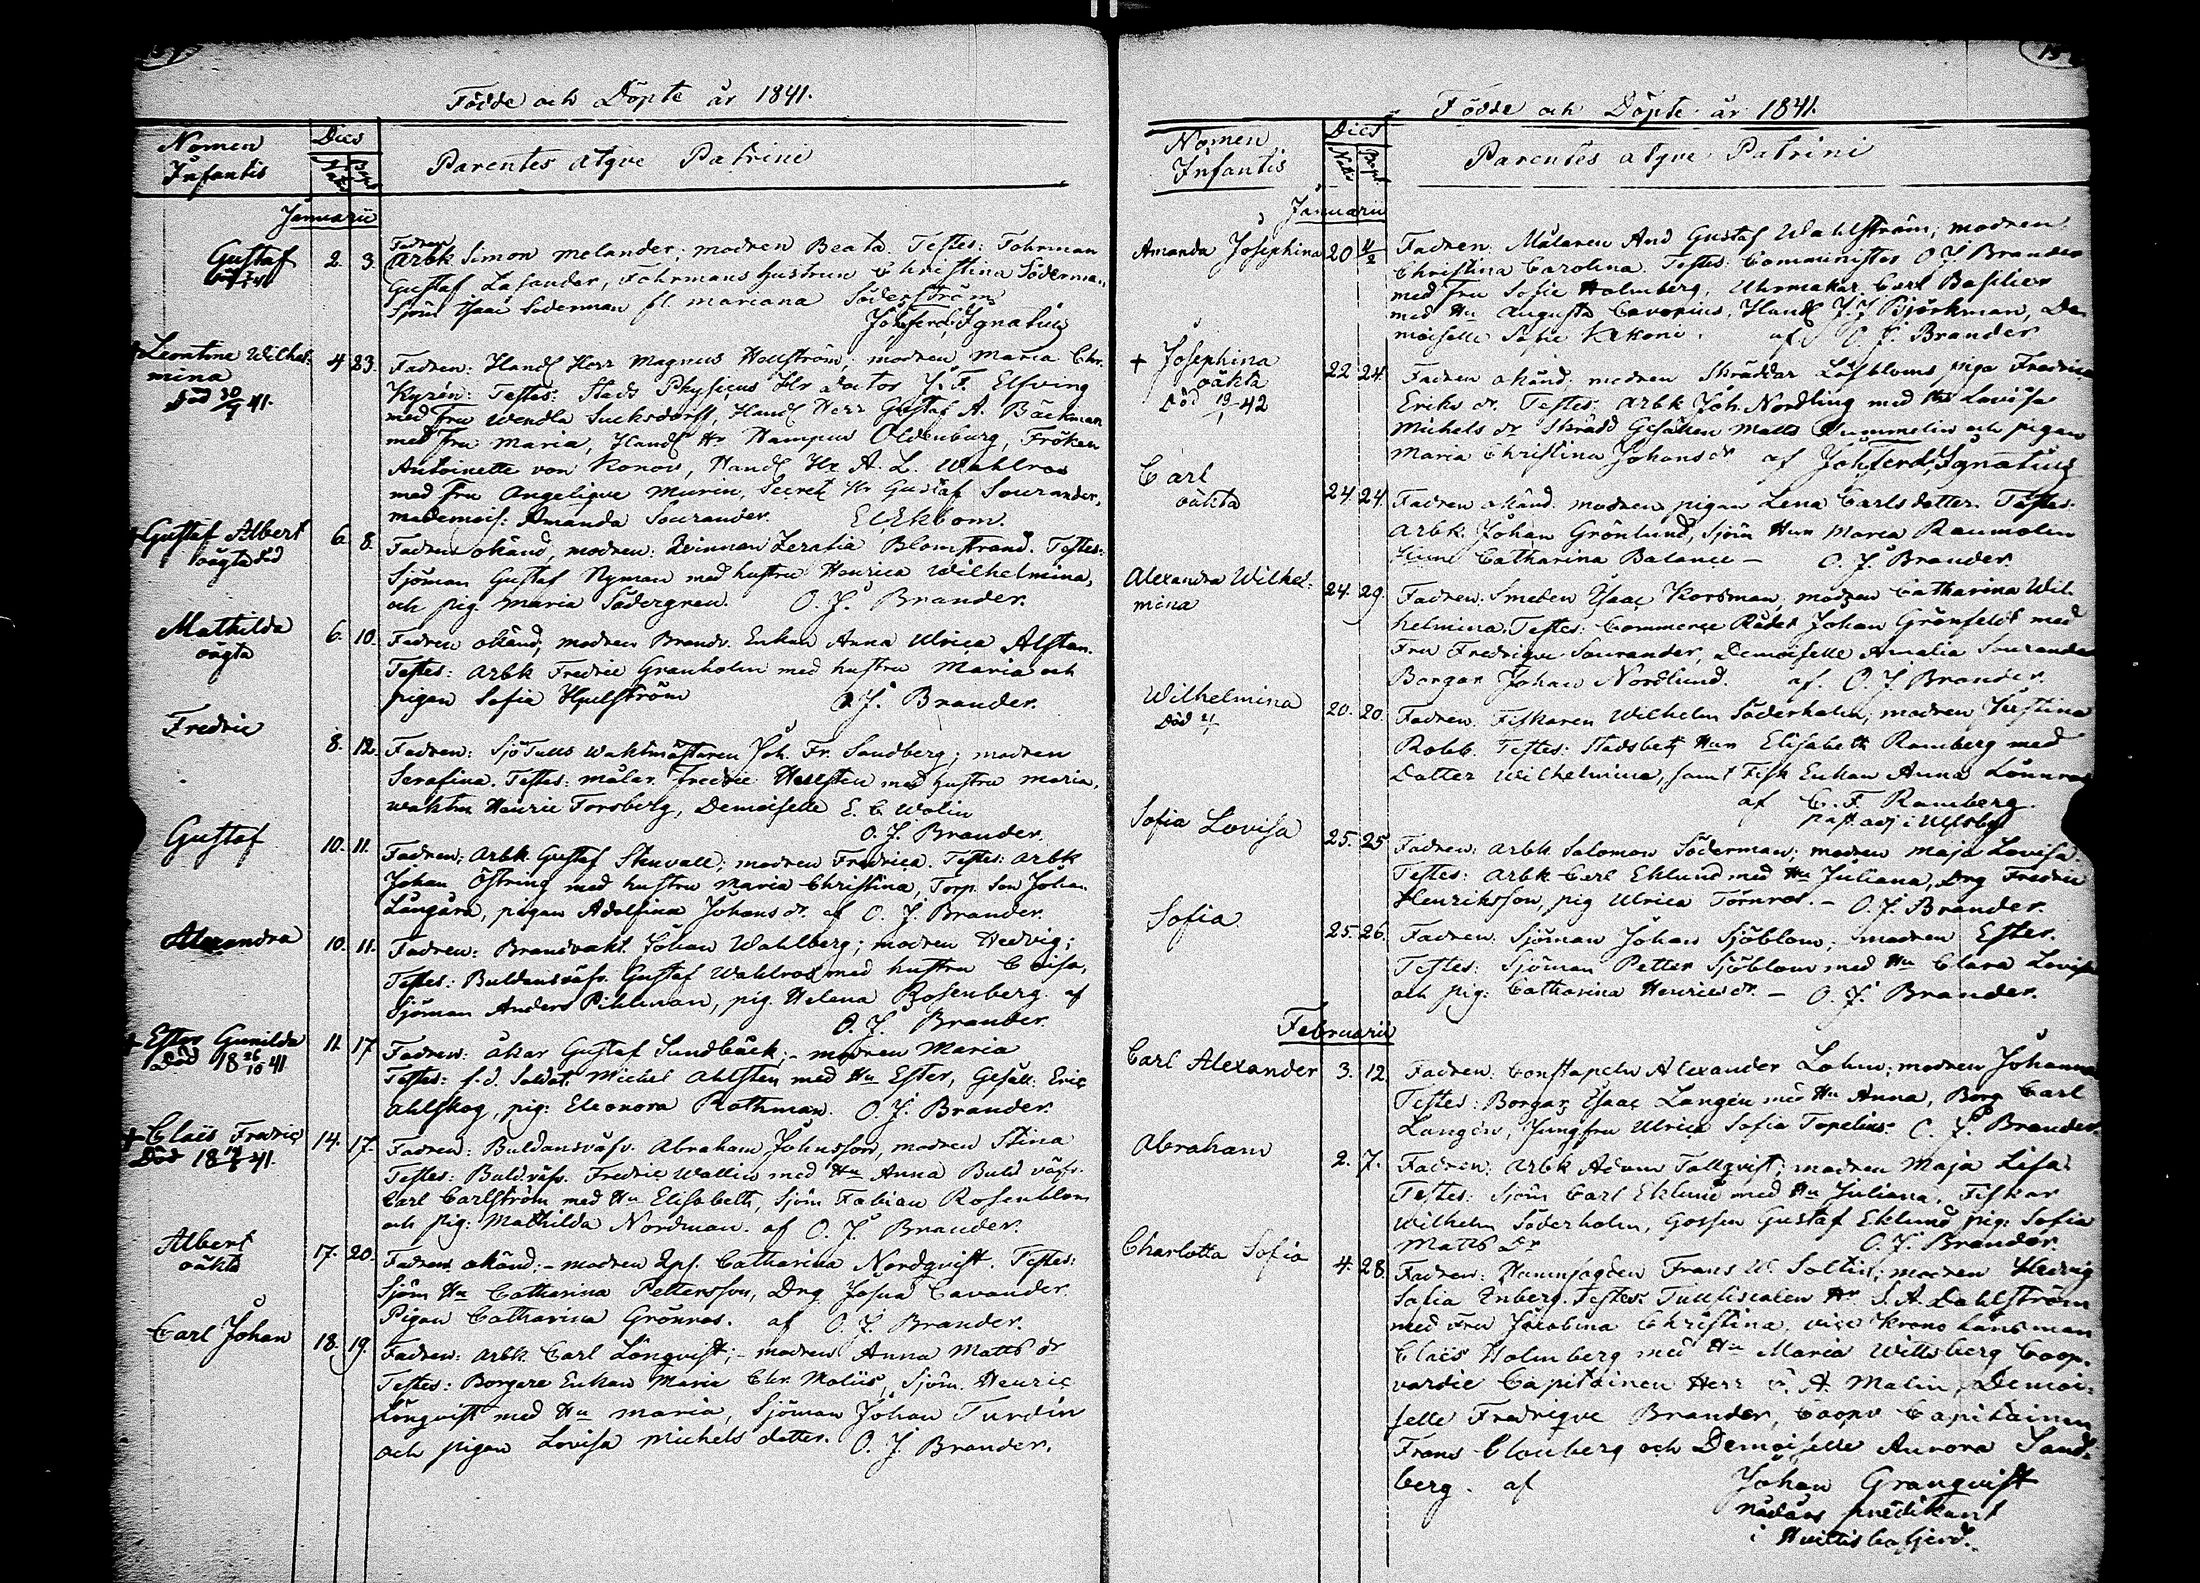 Födde och Döpte år 1841.
Nomen Infantis
Dies
Nat. Bapt.
Parentes atqve Patrini
Januarii
Gustaf 2. 3.
Fadren
Arbk Simon Melander; modren Beata. Testes: Fohrman
Gustaf Lasander, Fohrmans hustrun Christina Söderman
Sjöm Isaac Söderman fl. Mariana Söderström
Joh. Ferd. Ignatius
Leontine Wilhelmina
död 30/7 41.
4 23.
Fadren: Handl Herr Magnus Hellström; modren Maria Chr.
Kyrén: Testes: Stads Physicus Hr Doctor J. F. Elfving
med Fru Wendla Sucksdorff, Handl Herr Gustaf A. Bäckman
med Fru Maria, Handl Hr Hampus Oldenburg, Fröken
Antoinette von Konow, Handl Hr A. L. Wahlroos
med Fru Angelique Murin, Secret Hr Gustaf Sourander,
Mademois: Amanda Sourander. El. Ekbom.
Gustaf Albert
oägta död
6. 8.
Fadren okänd, modren: Qvinnan Zeratia Blomstrand. Testes:
Sjöman Gustaf Nyman med hustru Henrica Wilhelmina,
och pig. Maria Södergren. O. J. Brander.
Mathilda
oägta
6. 10.
Fadren okänd, modren Brandv. Enkan Anna Ulrica Alstan.
Testes: Arbk Fredric Granholm med hustru Maria och
pigan Sofia Hjulström O. J. Brander.
Fredric
8. 12.
Fadren: SjöTulls Waktmästaren Joh. Fr. Sandberg; modren
Serafina. Testes: målar. Fredric Hellsten med hustru Maria,
waktm Henric Forsberg, Demoiselle E. C. Wolin
O. J. Brander.
Gustaf
10. 11.
Fadren: Arbk. Gustaf Stenvall; modren Fredrica. Testes: Arbk
Johan Östring med hustru Maria Christina, Torp. Son Johan
Långård, pigan Adolfina Johans dr. af O. J. Brander.
Alexandra
10. 11.
Fadren: Brandvakt. Johan Wahlberg; modren Hedvig;
Testes: Buldansväfv. Gustaf Wahlroos med hustru Caisa,
Sjöman Anders Pihlman, pig. Helena Rosenberg. af
O. J. Brander.
Ester Gunilda
Död 18 26/10 41
11. 17
Fadren: åkar Gustaf Sundbäck; - modren Maria
Testes: f.d. Soldat. Michel Ahlsten med Hu Ester, Gesäll: Eric
Ahlskog, pig: Eleonora Rothman. O. J. Brander.
Claës Fredric
Död 18 41.
14. 17.
Fadren: Buldansväfv. Abraham Johnsson, modren Stina
Testes: Buld. väfv. Fredric Wallin med Hu Anna Buld väfv.
Carl Carlström med Hu Elisabeth, Sjöm Fabian Rosenblom
och pig: Mathilda Nordman. af O. J. Brander.
Albert
oäkta
17. 20.
Fadren okänd; - modren Qps. Catharina Nordqvist. Testes:
Sjöm Hu Catharina Pettersson, Drg Josua Cavander.
Pigan Catharina Grönros. af O. J. Brander.
Carl Johan
18. 19.
Fadren: Arbk. Carl Lönqvist; - modren Anna Matts dr
Testes: Borgare Enkan Maria Chr. Moliis, Sjöm. Henric
Lönqvist med Hu Maria, Sjöman Johan Turdin
och pigan Lovisa Michels dotter. O. J. Brander.
Födde och Döpte år 1841.
Nomen Infantis
Dies
Natus Bapt.
Parentes atqve Patrini
Januarii
Amanda Josephina 20 4/2
Fadren: Målaren And Gustaf Wahlström, modren
Christina Carolina. Testes: Comministern O. J. Brander
med Fru Sofie Holmberg, Uhrmakar Carl Basilier
med Hu Augusta Cavonius, Handl J. J. Björkman, De-
moiselle Sofie Kekoni. af O. J. Brander
Josephina
oäkta
död 19/1 42
22 24.
Fadren okänd, modren Skräddar Löfbloms piga Fredrica
Eriks dr. Testes: Arbk Joh. Nordling med Hu Lovisa
Michels dr Skrädd Gesällen Matts Nummelin och pigan
Maria Christina Johans dr af Joh. Ferd. Ignatius
Carl
oäkta
24. 24.
Fadren okänd. modren pigan Lena Carls dotter. Testes:
Arbk. Johan Grönlund, Sjöm Hun Maria Raumolin
Catharina Balance - O. J. Brander.
Alexandra Wilhelmina
24. 29.
Fadren: Smeden Isaac Korsman, modren Catharina Wil-
helmina. Testes: Commerce Rådet Johan Grönfeldt med
Fru Fredriqve Sourander, Demoiselle Amalia Sourander
Borgar Johan Nordlund. af. O. J. Brander.
Wilhelmina
Död
20. 20.
Fadren: Fiskaren Wilhelm Söderholm, modren Justina
Robb. Testes: Stadsbetj Hun Elisabeth Ramberg med
Dotter Wilhelmina, samt Fisk Enkan Anna Lönnroos
af C. F. Ramberg.
past. adj i Ulfsby
Sofia Lovisa
25. 25
Fadren: Arbk. Salomon Söderman; modren Maja Lovisa.
Testes: Arbk Carl Eklund med Hu Juliana, Drg Fredric
Henriksson, pig Ulrica Törnros. - O. J. Brander.
Sofia.
25. 26.
Fadren: Sjöman Johan Sjöblom; modren Ester.
Testes: Sjöman Petter Sjöblom med Hu Clara Lovisa
och pig: Catharina Henrics dr. - O. J. Brander.
Februarii
Carl Alexander
3. 12.
Fadren: Constapeln Alexander Lohm; modren Johanna
Testes: Borgar Esaac Langén med Hu Anna, Borg Carl
Langén, Jungfru Ulrica Sofia Topelius. O. J. Brander.
Abraham
2. 7.
Fadren: Arbk Adam Tallqvist; modren Maja Lisa.
Testes: Sjöm Carl Eklund med Hu Juliana. Fiskar
Wilhelm Söderholm, Gossen Gustaf Eklund pig: Sofia
Matts dr O. J. Brander.
Charlotta Sofia
4. 28.
Fadren: Hamnfogden Frans W. Soltin; modren Hedvig
Sofia Enberg. Testes: Tullfiscalen Hr S. A. Dahlström
med Fru Jacobina Christina, vice Krono Länsman
Claës Holmberg med Hu Maria Wittsberg Coop-
vardie Capitainen Herr F. A. Malin, Demoi-
selle Fredriqve Brander, Coopv Capitainen
Frans Clouberg och Demoiselle Aurora Sand-
berg. af Johan Granqvist
nådårs predikant
i Hvittisbofjerd.